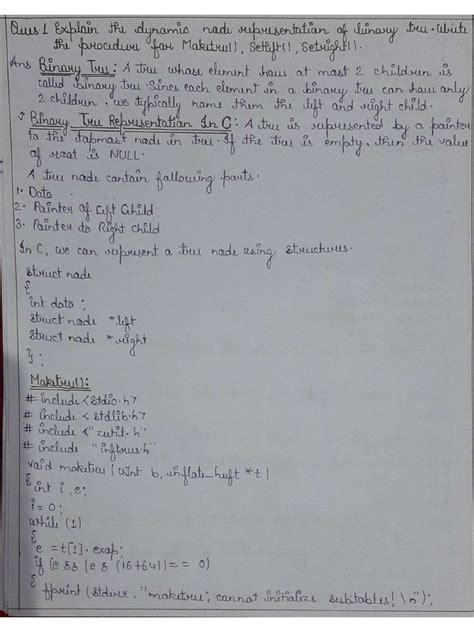 Ques 1 Explain the dynamic node representation of binary tree. Write
the procedure for Maketree(), Setleft(), Setright().
Ans Binary Tree: A tree whose element have at most 2 children is
called binary tree. Since each element in a binary tree can have only
2 children, we typically name them the left and right child.
Binary Tree Representation In C: A tree is represented by a pointer
to the topmost node in tree. If the tree is empty, then the value
of root is NULL.
A tree node contain following parts.
1. Data
2. Pointer of Left Child
3. Pointer to Right child
In C, we can represent a tree node using structures.
struct node
{
int data ;
struct node *left
struct node *right
} ;
Maketree():
# include <stdio.h>
# include <stdlib.h>
# include <"zutil.h"
# include "inftrees.h"
void maketree (uInt b, inflate_huft *t)
{
int i ,e;
i = 0;
while (1)
{
e = t[1].exop;
if (e && (e & (16+64)) = = 0)
{ fprint (stderr , "maketree: cannot initialize subtables! \n");